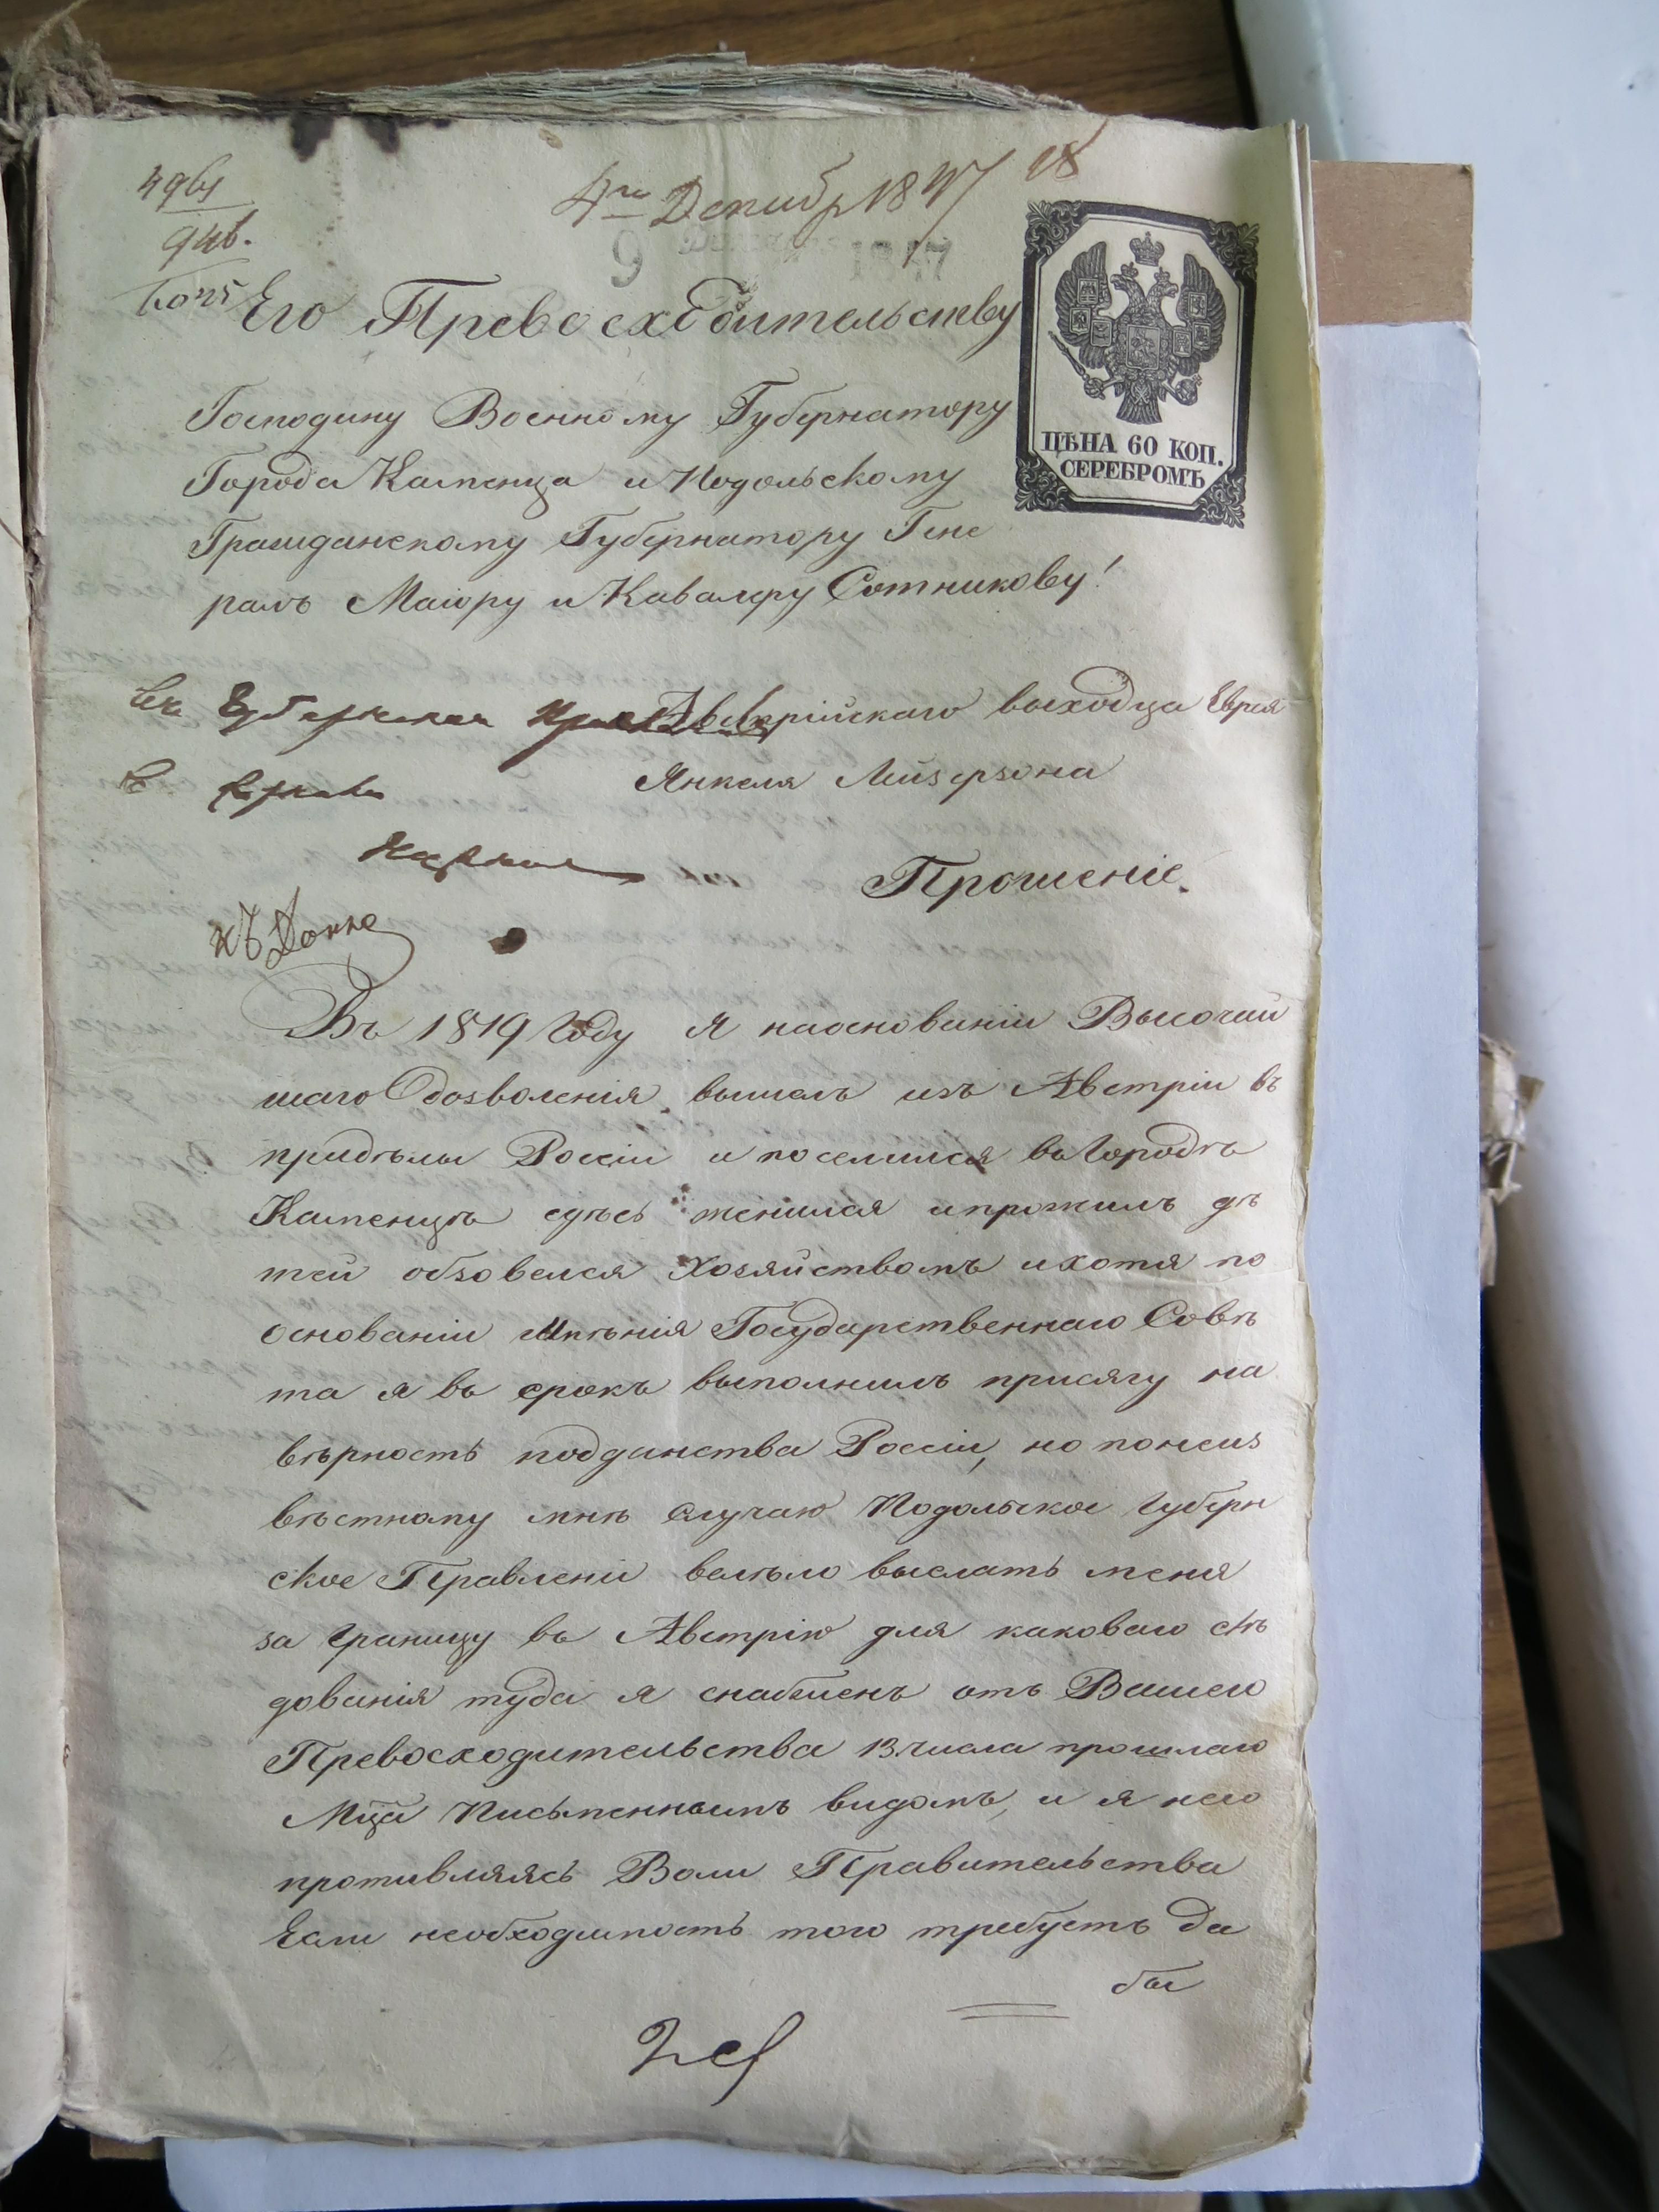 4го Декабр 1847
9 1847
Его Превосходительству
Господину Военному Губернатору
Города Каменца и Подольскому
Гражданскому Губернатору Гене
ралъ Маіору и Кавалеру Сотникову!
ЦѢНА 60 КОП.
СЕРЕБРОМЪ
Австрійскаго выходца Еврея
Янкеля Лейзерзона
Прошеніе.
Въ 1819 Году я наоснованіи Высочай
шаго дозволенія вышелъ изъ Австріи въ
придѣлы Россіи и поселился въ Городѣ
Каменцѣ сдѣсь женился и прожилъ дѣ
тей обзовелся хозяйствомъ и хотя по
основаніи Мнѣнія Государственнаго Совѣ
та я въ срокъ выполнилъ присягу на
вѣрность подданства Россіи, но понеиз
вѣстному мнѣ случаю Подольское Губерн
ское Правлени велѣло выслать меня
за границу въ Австрію для каковаго слѣ
дованія туда я снабженъ отъ Вашего
Превосходительства 13 числа прошлаго
Мца Письменнымъ видомъ, и я него
противляясь Воли Правительства
Если необходимость того требуетъ да
бы